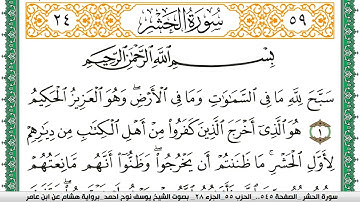 ٥٩ سُورَةُ الحَشْرِ ٢٤
بِسْمِ اللَّهِ الرَّحْمَٰنِ الرَّحِيمِ
سَبَّحَ لِلَّهِ مَا فِي السَّمَٰوَٰتِ وَمَا فِي الْأَرْضِ وَهُوَ الْعَزِيزُ الْحَكِيمُ
١ هُوَ الَّذِي أَخْرَجَ الَّذِينَ كَفَرُوا مِنْ أَهْلِ الْكِتَٰبِ مِن دِيَٰرِهِمْ
لِأَوَّلِ الْحَشْرِ مَا ظَنَنتُمْ أَن يَخْرُجُوا وَظَنُّوا أَنَّهُم مَانِعَتُهُمْ
سورة الحشر_الصفحة ٥٤٥_الحزب ٥٥_الجزء ٢٨_ بصوت الشيخ يوسف نوح احمد_ برواية هشام عن ابن عامر